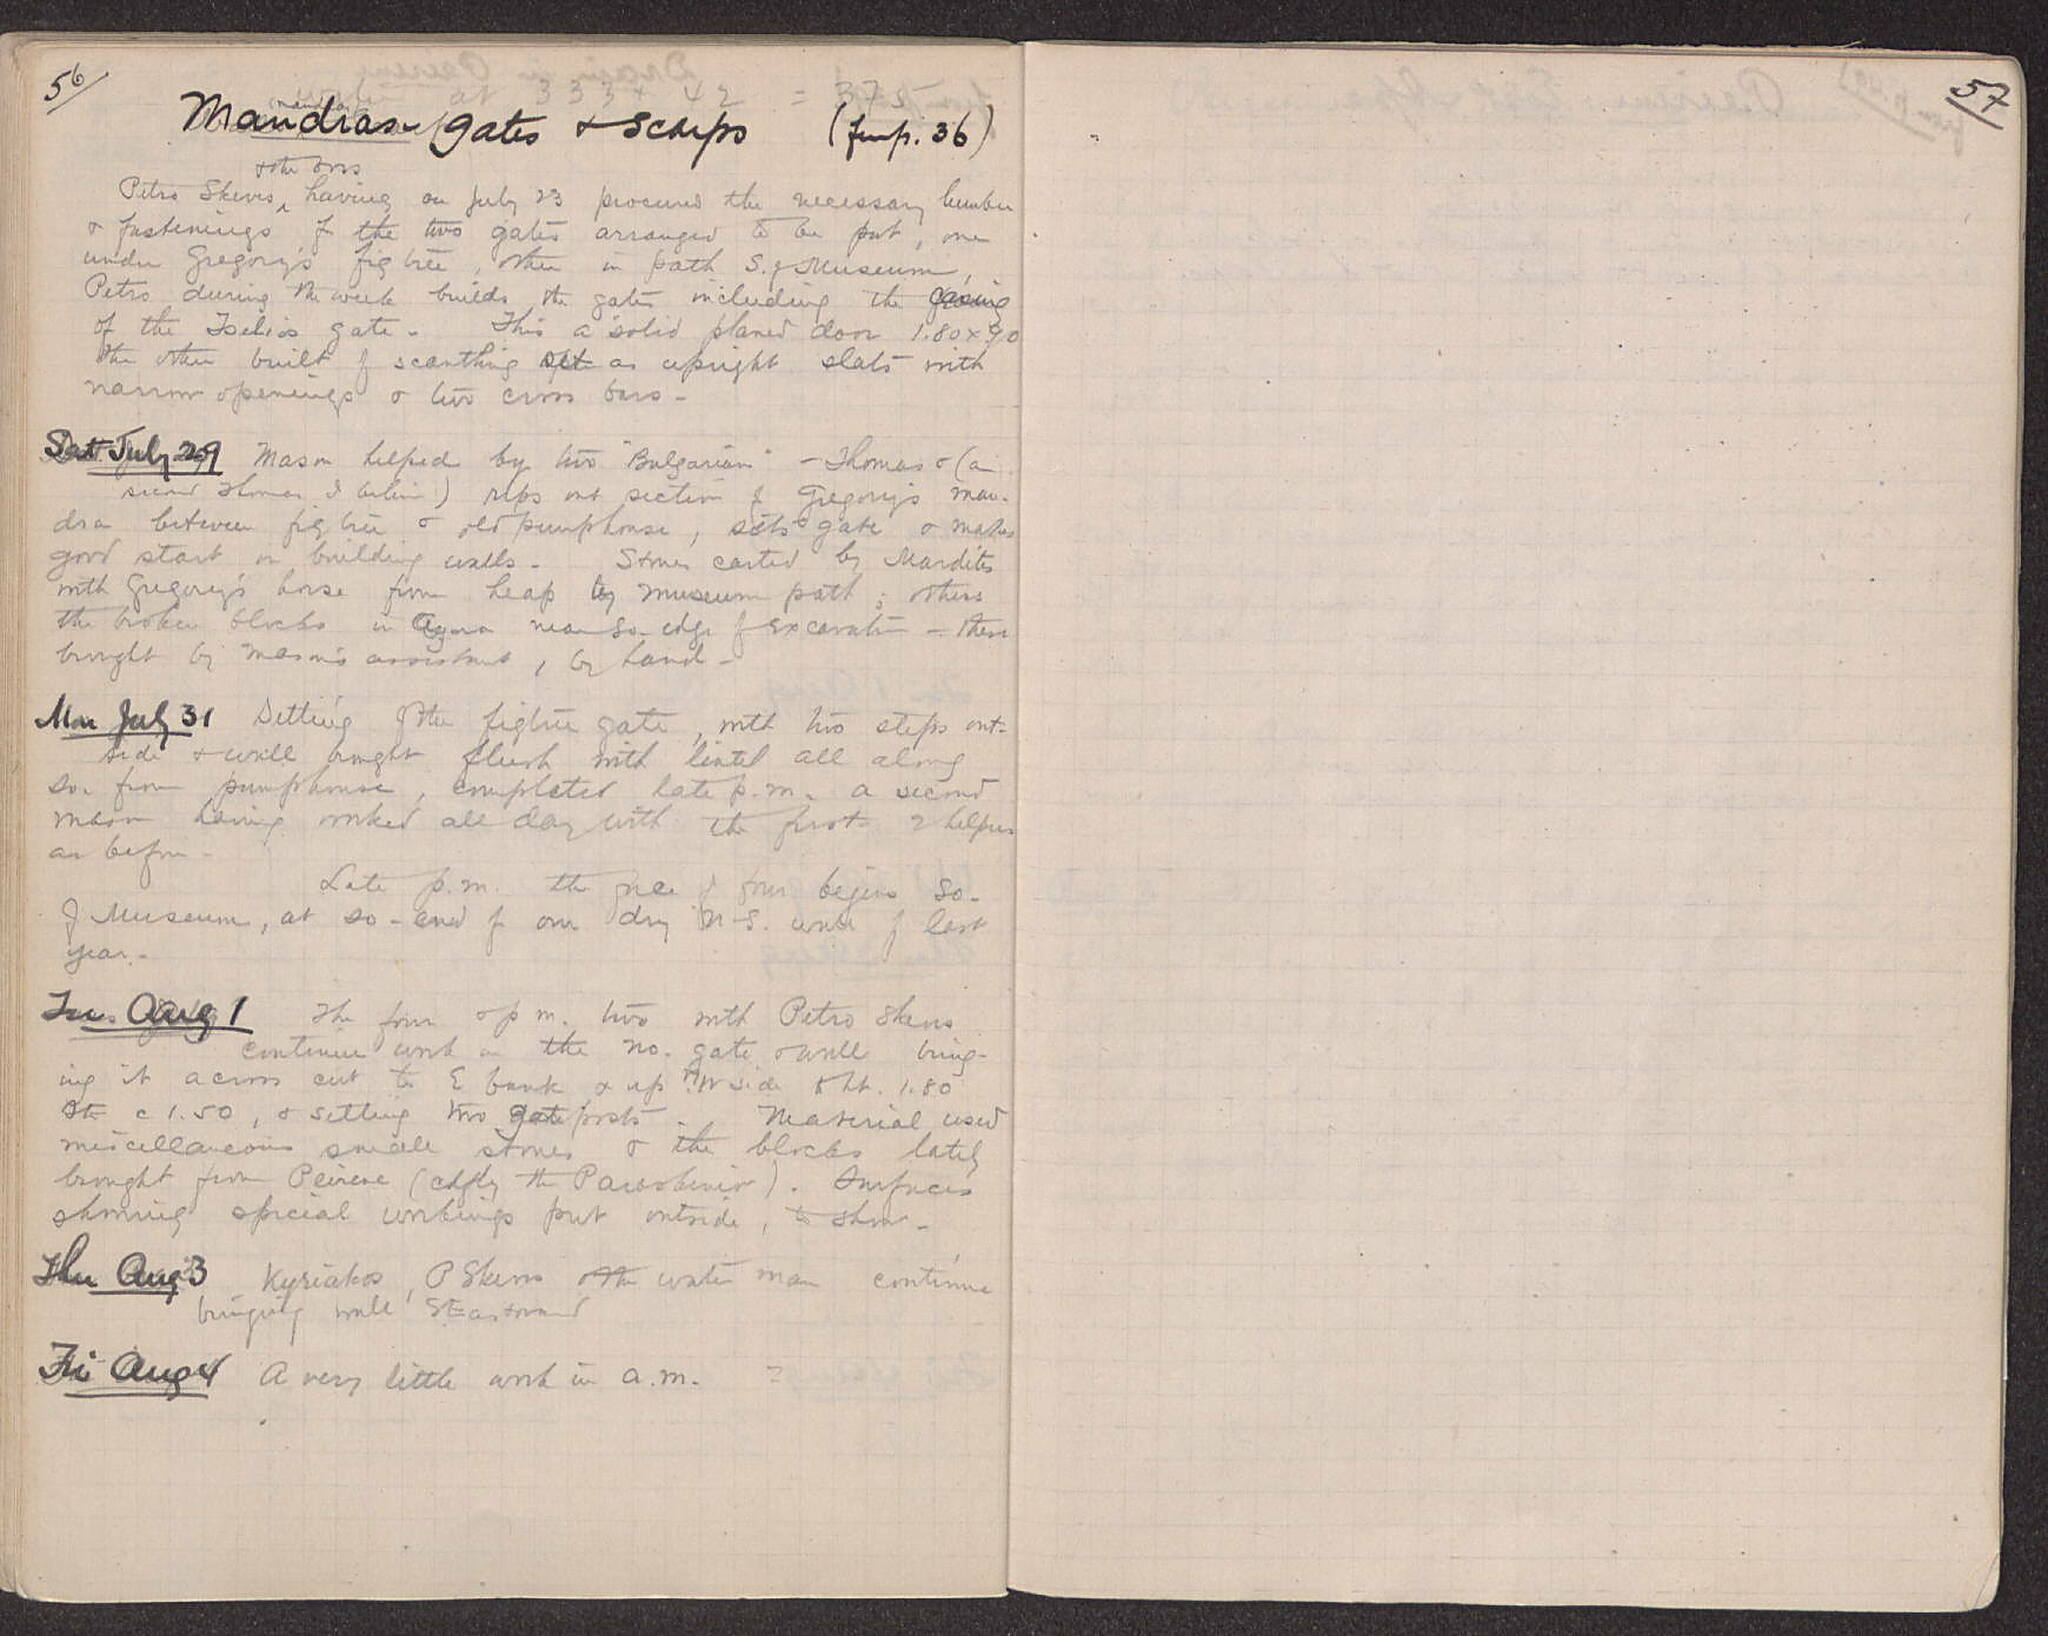 56
Mandras gates & scarps (fr. p. 36)
& the boss
Petro Skevis, having on July 23 procured the necessary lumber
& fastenings for the two gates arranged to be put, one
under Gregory's fig tree, other in path S. of Museum,
Petro during the week builds the gates including the
of the Tselios gate - This a solid planed door 1.80 x 90
the other built of scantling set as upright slats with
narrow openings & two cross bars -
Sat July 29 Mason helped by two "Bulgarian" - Thomas & (a
second Thomas I believe) rips out section of Gregory's man-
dra between fig tree & old pumphouse, sets gate & makes
good start on building walls - Stones carted by Mardites
with Gregory's horse from heap by museum path; others
the broken blocks in Agora near so. edge of excavation - these
brought by mason's assistant, by hand -
Mon July 31 Setting of the figtree gate, with two steps out-
side & wall brought flush with lintel all along
so. from pumphouse, completed late p.m. a second
mason having worked all day with the first & helpers
as before -
Late p.m. the force of four begins so.
of Museum, at so-end of our dry N-S. wall of last
year -
Tu. Aug 1 The four & p.m. two with Petro Skevis
continue work on the no. gate & wall bring-
ing it across cut to E bank & up N side to ht. 1.80
c 1.50, & setting two gateposts. Material used
miscellaneous small stones & the blocks lately
brought from Peirene (chfly the ). Surfaces
showing special workings put outside, to show -
Thu Aug 3 Kyriakos, P Skevis & the water man continue
bringing wall Eastward
Fri Aug 4 A very little work in a.m. ?
57